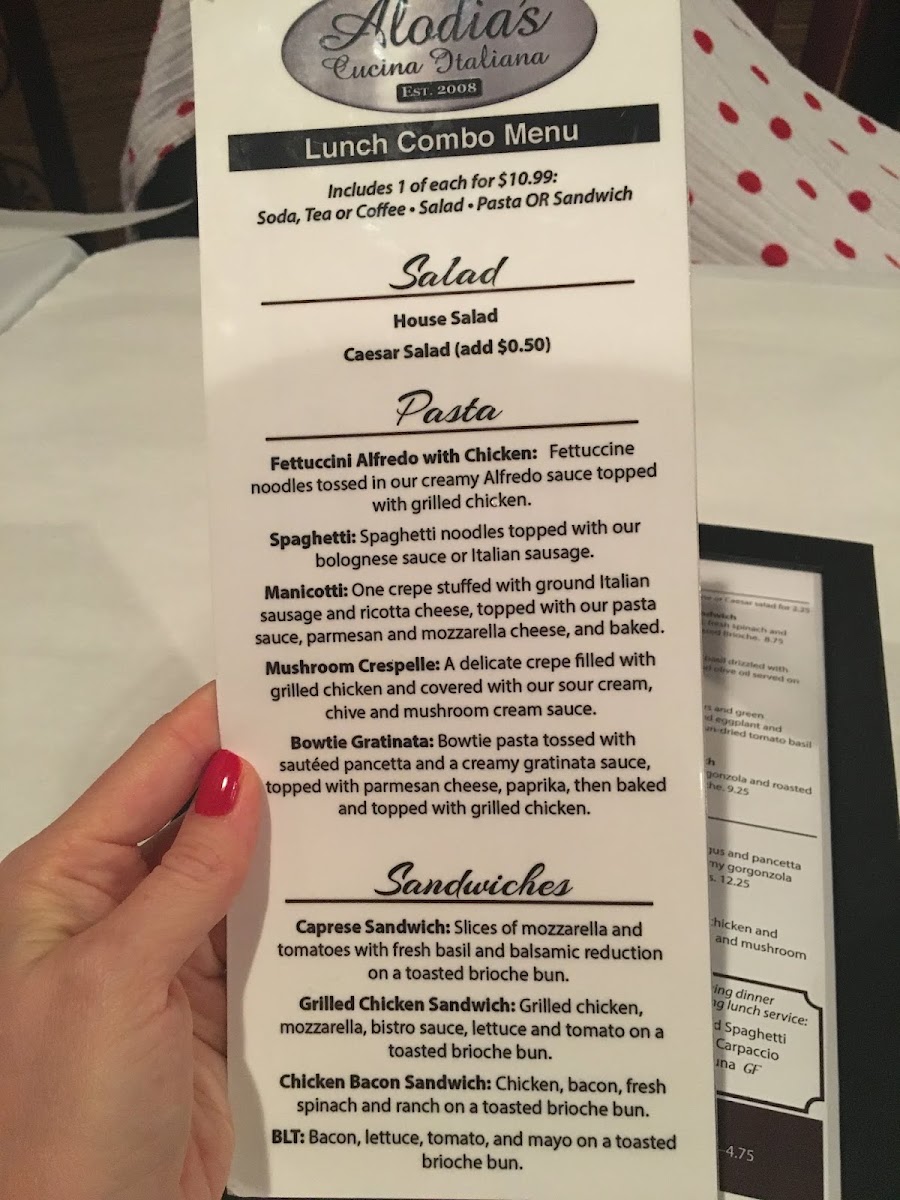 Alodia's
Cucina Italiana
EST. 2008
Lunch Combo Menu
Includes 1 of each for $10.99:
Soda, Tea or Coffee • Salad • Pasta OR Sandwich
Salad
House Salad
Caesar Salad (add $0.50)
Pasta
Fettuccini Alfredo with Chicken: Fettuccine
noodles tossed in our creamy Alfredo sauce topped
with grilled chicken.
Spaghetti: Spaghetti noodles topped with our
bolognese sauce or Italian sausage.
Manicotti: One crepe stuffed with ground Italian
sausage and ricotta cheese, topped with our pasta
sauce, parmesan and mozzarella cheese, and baked.
Mushroom Crespelle: A delicate crepe filled with
grilled chicken and covered with our sour cream,
chive and mushroom cream sauce.
Bowtie Gratinata: Bowtie pasta tossed with
sautéed pancetta and a creamy gratinata sauce,
topped with parmesan cheese, paprika, then baked
and topped with grilled chicken.
Sandwiches
Caprese Sandwich: Slices of mozzarella and
tomatoes with fresh basil and balsamic reduction
on a toasted brioche bun.
Grilled Chicken Sandwich: Grilled chicken,
mozzarella, bistro sauce, lettuce and tomato on a
toasted brioche bun.
Chicken Bacon Sandwich: Chicken, bacon, fresh
spinach and ranch on a toasted brioche bun.
BLT: Bacon, lettuce, tomato, and mayo on a toasted
brioche bun.
or Caesar salad for 2.25
fresh spinach and
Brioche. 8.75
drizzled with
olive oil served on
and green
eggplant and
sun-dried tomato basil
gonzola and roasted
9.25
and pancetta
gorgonzola
12.25
chicken and
and mushroom
dinner
lunch service:
Spaghetti
Carpaccio
GF
4.75